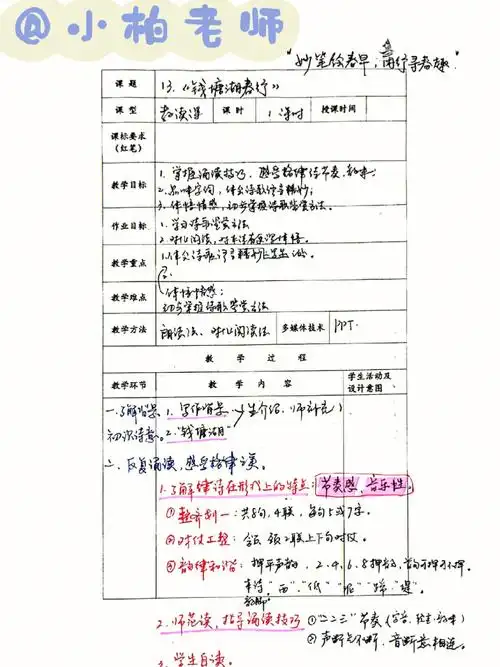 @小柏老师
"妙笔绘春早，再行寻春趣"
课 题 13.《钱塘湖春行》
课 型 教读课 课 时 1课时 授课时间
课标要求
(红笔)
教学目标 1. 掌握诵读技巧，感受格律诗节奏、韵味；
2. 品味字词，体会诗歌语言精妙；
3. 体悟情感，初步掌握诗歌鉴赏方法。
作业目标 1. 学习诗歌鉴赏方法
2. 对比阅读，
教学重点 1. 体会诗歌语言精妙
教学难点 体悟情感；
初步掌握诗歌鉴赏方法
教学方法 朗读法、对比阅读法 多媒体技术 PPT
教 学 过 程
教学环节 教 学 内 容 学生活动及
设计意图
一.了解背景 1. 写作背景 生介绍，师补充
初识诗意。2. 钱塘湖
二、反复诵读，感受格律之美。
1. 了解律诗在形式上的特点：节奏感、音乐性。
①整齐划一：共8句，4联，每句5或7字。
②对仗工整：颔、颈2联上下句对仗。
③韵律和谐：押平声韵，2、4、6、8押韵，首句可押可不押。
本诗"西""低""泥""蹄""堤"
2. 师范读，指导诵读技巧 ①"二二三"节奏
②声断气不断，音断意相连。
3. 学生自读。